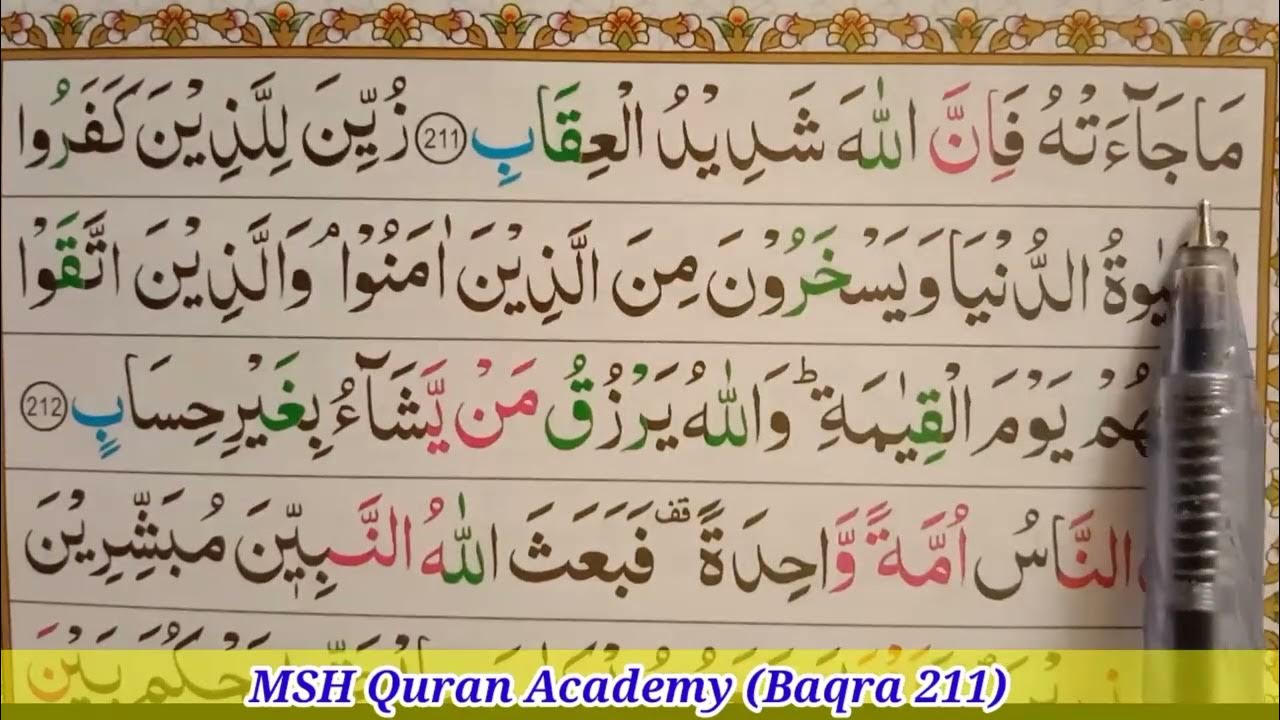 مَا جَآءَتْهُ فَاِنَّ اللّٰهَ شَدِيْدُ الْعِقَابِ 211 زُيِّنَ لِلَّذِيْنَ كَفَرُوا
الدُّنْيَا وَيَسْخَرُوْنَ مِنَ الَّذِيْنَ اٰمَنُوْا ۘ وَالَّذِيْنَ اتَّقَوْا
يَوْمَ الْقِيٰمَةِ ؕ وَاللّٰهُ يَرْزُقُ مَنْ يَّشَآءُ بِغَيْرِ حِسَابٍ 212
النَّاسُ اُمَّةً وَّاحِدَةً قف فَبَعَثَ اللّٰهُ النَّبِيّٖنَ مُبَشِّرِيْنَ
MSH Quran Academy (Baqra 211)